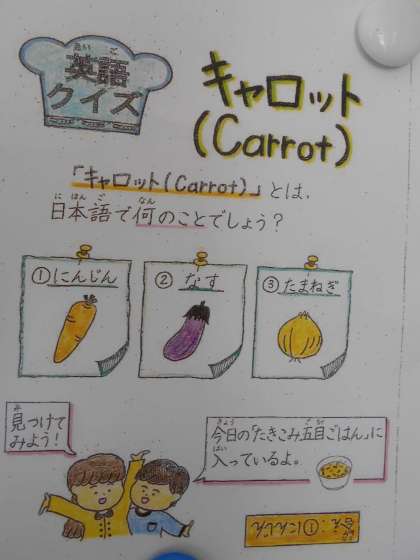 英語
クイズ
キャロット
(Carrot)
「キャロット(Carrot)」とは、
日本語で何のことでしょう?
①にんじん
② なす
③たまねぎ
見つけて
みよう!
今日の「たきこみ五目ごはん」に
入っているよ。
答:①にんじん